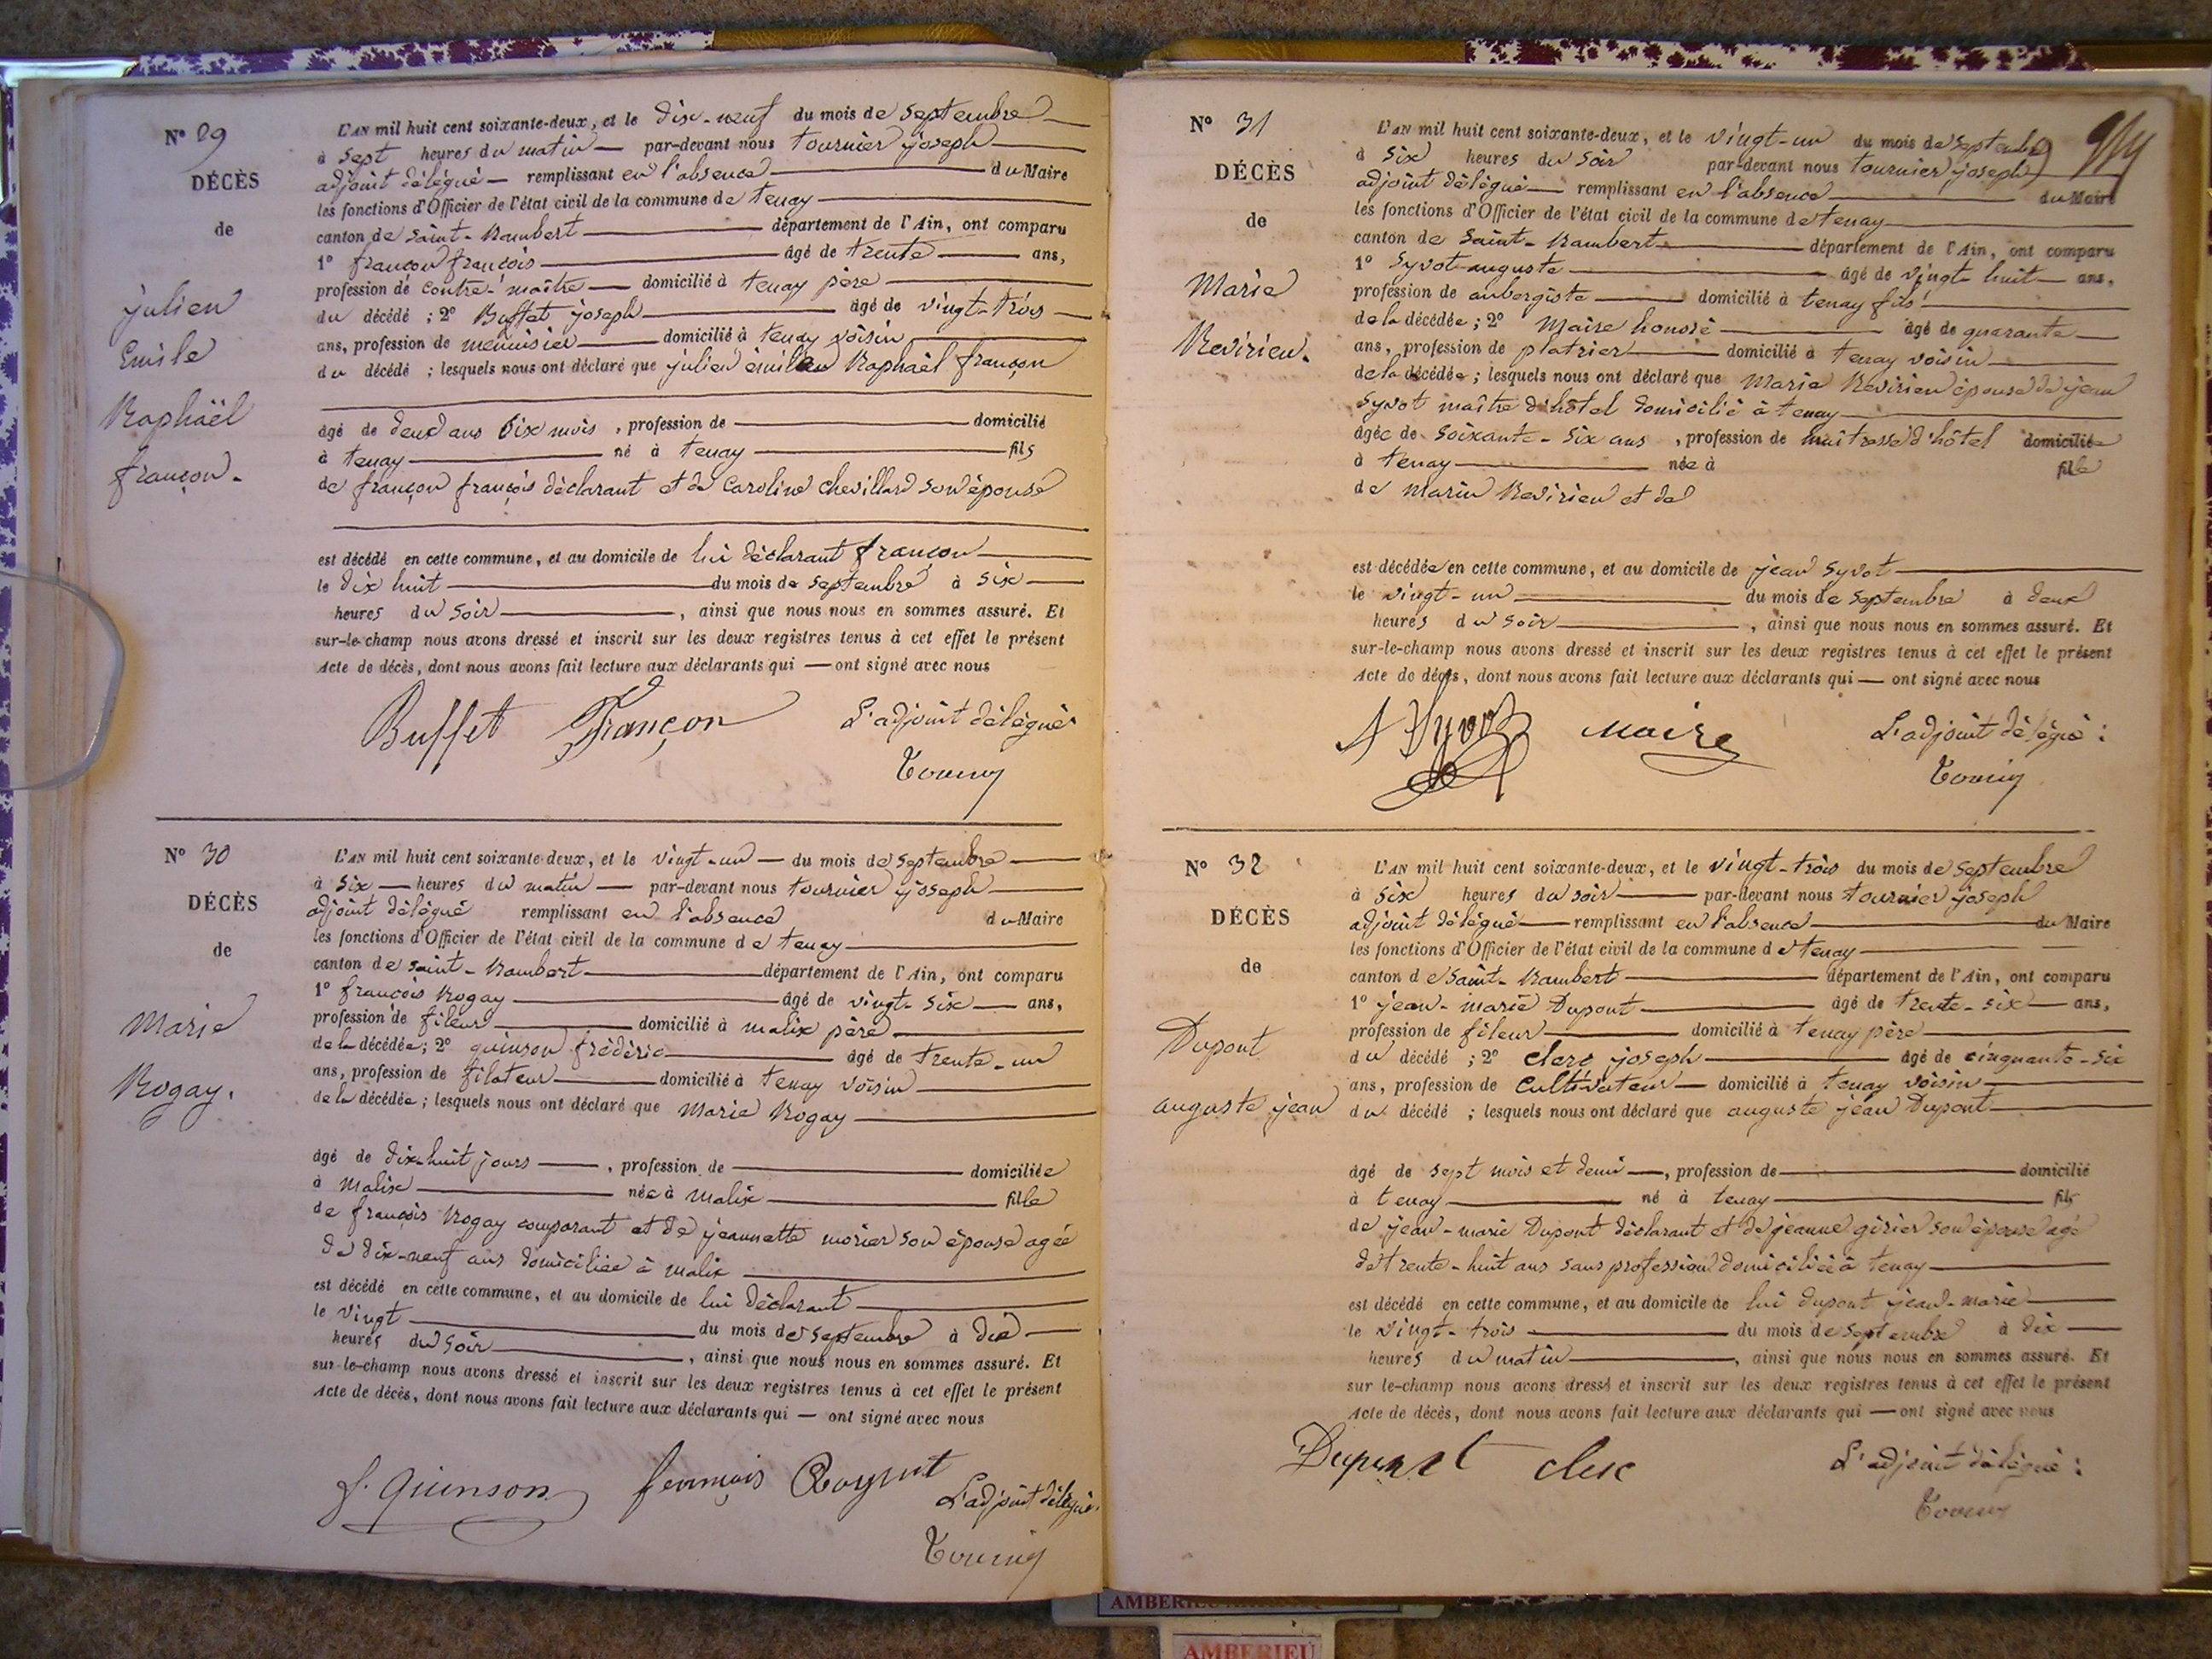 Nº 29
DÉCÈS
de
julien
Emile
Raphaël
françon.
L'AN mil huit cent soixante-deux, et le dix-neuf du mois de septembre
à sept heures du matin par-devant nous tournier joseph
adjoint délégué remplissant en l'absence du Maire
les fonctions d'Officier de l'état civil de la commune de tenay
canton de saint-Rambert département de l'Ain, ont comparu
1º françon françois âgé de trente ans,
profession de contre-maître domicilié à tenay père
du décédé ; 2º Buffet joseph âgé de vingt-trois
ans, profession de menuisier domicilié à tenay voisin
du décédé ; lesquels nous ont déclaré que julien émile Raphaël françon
âgé de deux ans six mois, profession de domicilié
à tenay né à tenay fils
de françon françois déclarant et de Caroline chevillard son épouse
est décédé en cette commune, et au domicile de lui déclarant françon
le dix huit du mois de septembre à six
heures du soir, ainsi que nous nous en sommes assuré. Et
sur-le-champ nous avons dressé et inscrit sur les deux registres tenus à cet effet le présent
Acte de décès, dont nous avons fait lecture aux déclarants qui — ont signé avec nous
Buffet Françon L'adjoint délégué
Nº 30
DÉCÈS
de
Marie
Rogay.
L'AN mil huit cent soixante-deux, et le vingt-un du mois de septembre
à six heures du matin par-devant nous tournier joseph
adjoint délégué remplissant en l'absence du Maire
les fonctions d'Officier de l'état civil de la commune de tenay
canton de saint-Rambert département de l'Ain, ont comparu
1º françois Rogay âgé de vingt-six ans,
profession de fileur domicilié à malix père
de la décédée ; 2º quinson frédéric âgé de trente-un
ans, profession de filateur domicilié à tenay voisin
de la décédée ; lesquels nous ont déclaré que Marie Rogay
âgé de dix-huit jours, profession de domiciliée
à Malix née à Malix fille
de françois Rogay comparant et de jeannette morier son épouse agée
de dix-neuf ans domiciliée à malix
est décédé en cette commune, et au domicile de lui déclarant
le vingt du mois de septembre à dix
heures du soir, ainsi que nous nous en sommes assuré. Et
sur-le-champ nous avons dressé et inscrit sur les deux registres tenus à cet effet le présent
Acte de décès, dont nous avons fait lecture aux déclarants qui — ont signé avec nous
f. Quinson L'adjoint délégué.
Nº 31
DÉCÈS
de
Marie
Revirieu.
L'AN mil huit cent soixante-deux, et le vingt-un du mois de septembre
à six heures du soir par-devant nous tournier joseph
adjoint délégué remplissant en l'absence du Maire
les fonctions d'Officier de l'état civil de la commune de tenay
canton de saint-Rambert département de l'Ain, ont comparu
1º Syvot auguste âgé de vingt-huit ans,
profession de aubergiste domicilié à tenay fils
de la décédée ; 2º Maire honoré âgé de quarante
ans, profession de platrier domicilié à tenay voisin
de la décédée ; lesquels nous ont déclaré que Marie Revirieu épouse de jean
Syvot maître d'hôtel domicilié à tenay
âgée de soixante-six ans, profession de maîtresse d'hôtel domiciliée
à tenay née à fille
de marin Revirieu et de
est décédée en cette commune, et au domicile de jean Syvot
le vingt-un du mois de septembre à deux
heures du soir, ainsi que nous nous en sommes assuré. Et
sur-le-champ nous avons dressé et inscrit sur les deux registres tenus à cet effet le présent
Acte de décès, dont nous avons fait lecture aux déclarants qui — ont signé avec nous
A Syvot Maire L'adjoint délégué :
Nº 32
DÉCÈS
de
Dupont
auguste jean
L'AN mil huit cent soixante-deux, et le vingt-trois du mois de septembre
à six heures du soir par-devant nous tournier joseph
adjoint délégué remplissant en l'absence du Maire
les fonctions d'Officier de l'état civil de la commune de tenay
canton de saint-Rambert département de l'Ain, ont comparu
1º jean-marie Dupont âgé de trente-six ans,
profession de fileur domicilié à tenay père
du décédé ; 2º clerc joseph âgé de cinquante-six
ans, profession de cultivateur domicilié à tenay voisin
du décédé ; lesquels nous ont déclaré que auguste jean Dupont
âgé de sept mois et demi, profession de domicilié
à tenay né à tenay fils
de jean-marie Dupont déclarant et de jeanne girier son épouse agé
de trente-huit ans sans profession domiciliée à tenay
est décédé en cette commune, et au domicile de lui dupont jean-marie
le vingt-trois du mois de septembre à dix
heures du matin, ainsi que nous nous en sommes assuré. Et
sur le-champ nous avons dressé et inscrit sur les deux registres tenus à cet effet le présent
Acte de décès, dont nous avons fait lecture aux déclarants qui — ont signé avec nous
Dupont clerc L'adjoint délégué :
AMBERIEU